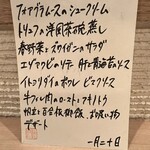 フォアグラムースのシュークリーム
トリュフの洋風茶碗蒸し
春野菜とズワイガニのサラダ
エゾアワビのソテー 肝と青海苔ソース
イトヨリダイのポワレ ビスクソース
牛フィレ肉のロースト
デザート
一月二十日